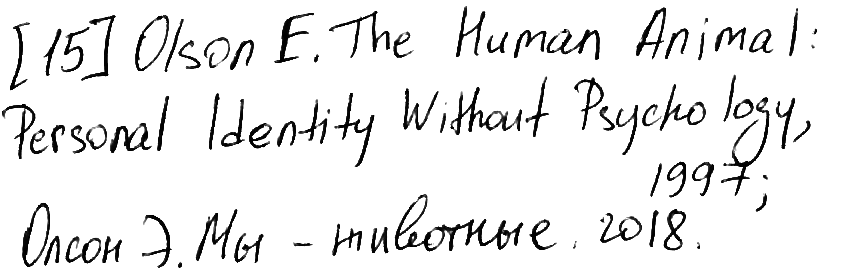 [15] Olson E. The Human Animal:
Personal Identity Without Psychology,
1997;
Олсон Э. Мы – животные. 2018.